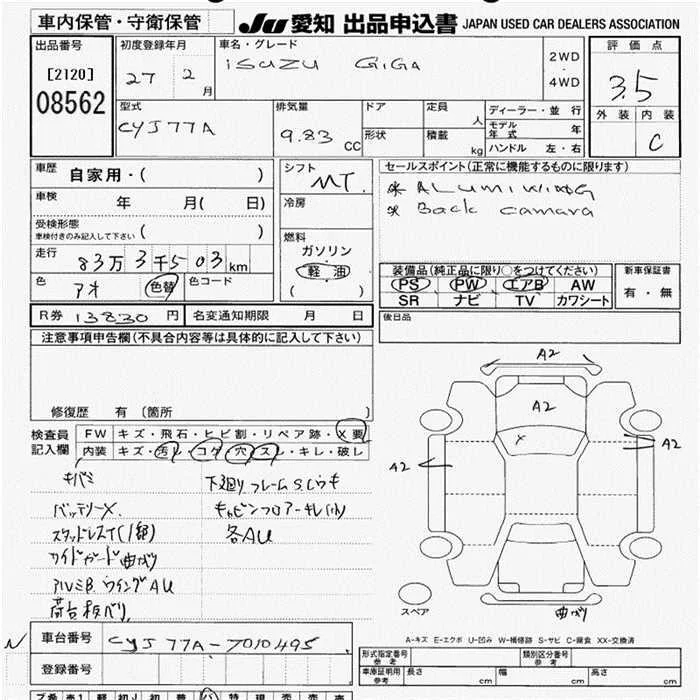 車内保管・守衛保管
JU 愛知 出品申込書 JAPAN USED CAR DEALERS ASSOCIATION
出品番号
[2120]
08562
初度登録年月
27 2 月
車名・グレード
ISUZU GIGA
2WD
・
4WD
評価点
3.5
外装 内装
C
型式
CYJ77A
排気量
9.83 CC
ドア
形状
定員
人
積載
kg
ディーラー・並行
モデル年式 年
ハンドル 左・右
車歴
自家用・( )
車検
年 月( 日)
受検形態
車検付きのみ記入して下さい ( )
走行
83万 3千503km
色
アオ 色替
色コード
シフト
MT
冷房
燃料
ガソリン
軽油
( )
セールスポイント(正常に機能するものに限ります)
* ALUMIWING
* Back camara
装備品(純正品に限り○をつけてください)
PS PW エアB AW
SR ナビ TV カワシート
新車保証書
有・無
R券 13830 円
名変通知期限 月 日
後日品
注意事項申告欄(不具合内容等は具体的に記入して下さい)
修復歴 有(箇所 )
検査員
記入欄
FW キズ・飛石・ヒビ割・リペア跡・X要
内装 キズ・汚レ・コゲ・穴・スレ・キレ・破レ
キバミ
バッテリーX.
スタッドレスT(1部)
サイドガード曲がり
アルミB ウイングAU
荷台板べり
下廻りフレームS.C
キャビンフロアーキレ(小)
各AU
A2
A2
X
A2
A2
スペア
曲がり
A-キズ E-エクボ U-凹み W-補修跡 S-サビ C-腐食 XX-交換済
車台番号
CYJ77A-7010495
登録番号
形式指定番号
参考
類別区分番号
参考
車庫証明用
参考
長さ cm 幅 cm 高さ cm